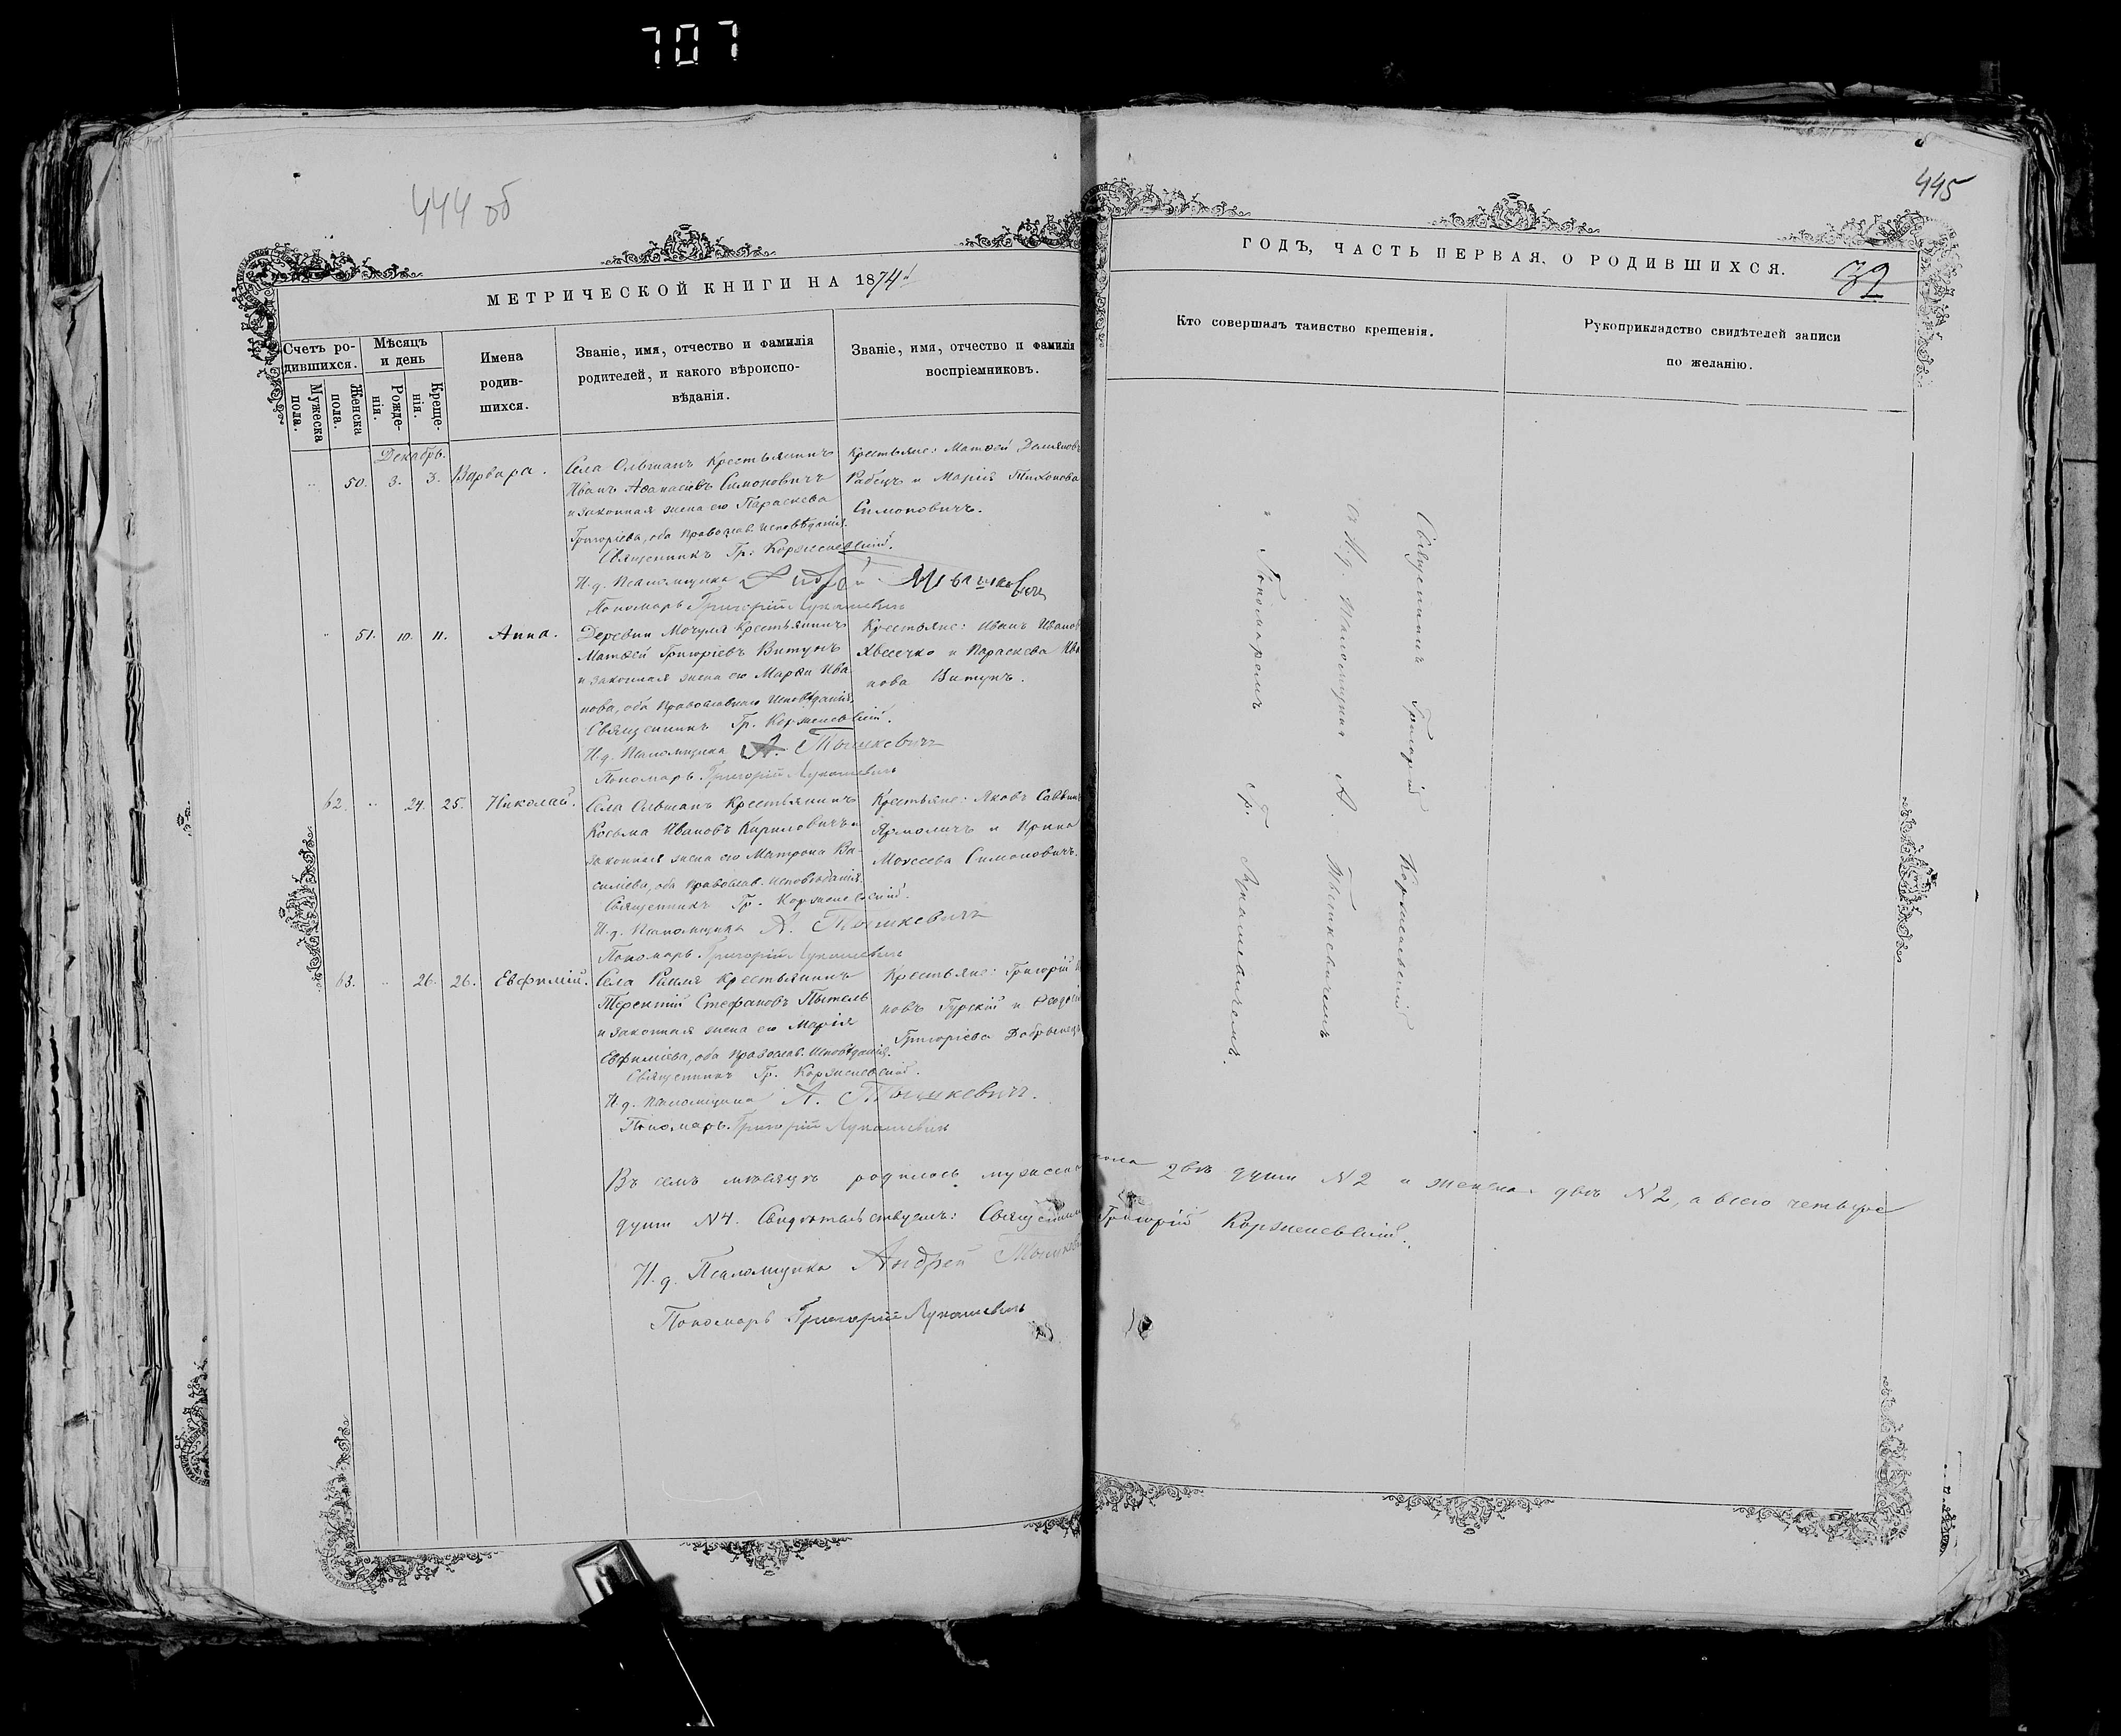 707
444 об
445
МЕТРИЧЕСКОЙ КНИГИ НА 1874й
ГОДЪ, ЧАСТЬ ПЕРВАЯ, О РОДИВШИХСЯ.
32
Счетъ ро-
дившихся.
Мужеска
пола.
Женска
пола.
Мѣсяцъ
и день
Рожде-
нія.
Креще-
нія.
Имена
родив-
шихся.
Званіе, имя, отчество и фамилія
родителей, и какого вѣроиспо-
вѣданія.
Званіе, имя, отчество и фамилія
воспріемниковъ.
Кто совершалъ таинство крещенія.
Рукоприкладство свидѣтелей записи
по желанію.
Декабрь.
50. 3. 3. Варвара.
Села Ольшанъ Крестьянинъ
Иванъ Аѳанасіевъ Симоновичъ
и законная жена его Параскева
Григоріева, оба православ. исповѣданія.
Священникъ Гр. Корженевскій.
И. д. Псаломщика Андрей Тышкевичъ
Пономарь Григорій Лукашевичъ
Крестьяне: Матѳей Демяновъ
Рабецъ и Марія Тихонова
Симоновичъ.
51. 10. 11. Анна.
Деревни Мочуля Крестьянинъ
Матѳей Григоріевъ Витунъ
и законная жена его Марѳа Ива-
нова, оба православнаго исповѣданія.
Священникъ Гр. Корженевскій.
И. д. Псаломщика А. Тышкевичъ
Пономарь Григорій Лукашевичъ
Крестьяне: Иванъ Иванов
Хвесечко и Параскева Ива
нова Витунъ.
62. 24. 25. Николай.
Села Ольшанъ Крестьянинъ
Косьма Ивановъ Кириловичъ и
законная жена его Матрона Ва-
силіева, оба православ. исповѣданія.
Священникъ Гр. Корженевскій.
И. д. Псаломщика А. Тышкевичъ
Пономарь Григорій Лукашевичъ
Крестьяне: Яковъ Саввинъ
Ярмоличъ и Ирина
Моисеева Симоновичъ.
63. 26. 26. Евфимій.
Села Крестьянинъ
Терентій Стефановъ Пытель
и законная жена его Марія
Евфиміева, оба православ. исповѣданія.
Священникъ Гр. Корженевскій.
И. д. Псаломщика А. Тышкевичъ.
Пономарь Григорій Лукашевичъ
Крестьяне: Григорій
новъ Гурскій и
Григоріева Добрынецъ
Священникъ Григорій Корженевскій
съ И. д. Псаломщика А. Тышкевичемъ
и Пономаремъ Г. Лукашевичемъ.
Въ семъ мѣсяцѣ родилось мужеска пола двѣ души N 2 и женска двѣ N 2, а всего четыре
души N 4. Свидѣтельствуемъ: Священникъ Григорій Корженевскій.
И. д. Псаломщика Андрей Тышкевичъ
Пономарь Григорій Лукашевичъ